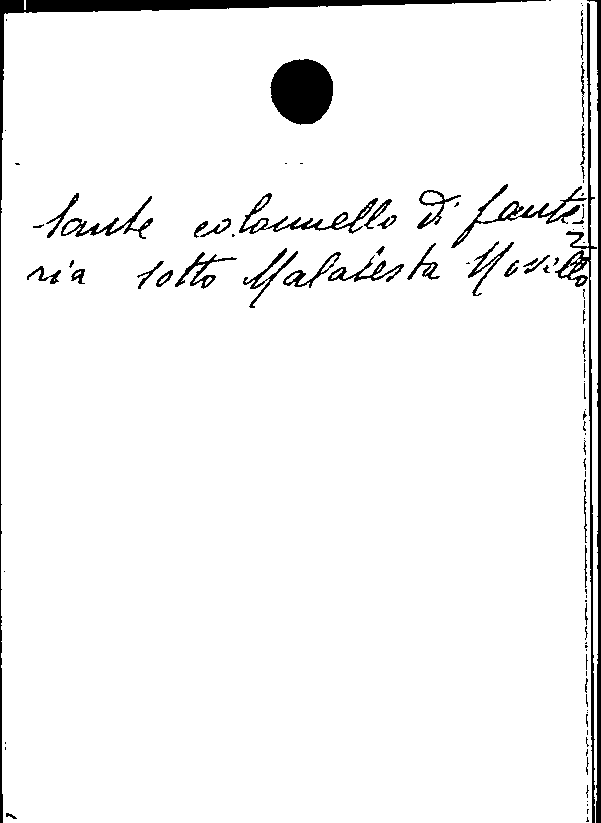 Sante colonnello di fante
ria sotto Malatesta Novello